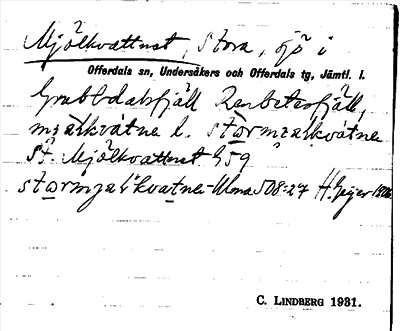 Mjölkvattnet, Stora, sjö i
Offerdals sn, Undersåkers och Offerdals tg, Jämtl. l.
Grubbdalsfjäll Renbetesfjäll,
mjalkvátne l. starmjalkvátne
St. Mjölkvattnet 459
starmjalkvatne - Ulma 508:27 H. Geijer
C. LINDBERG 1931.